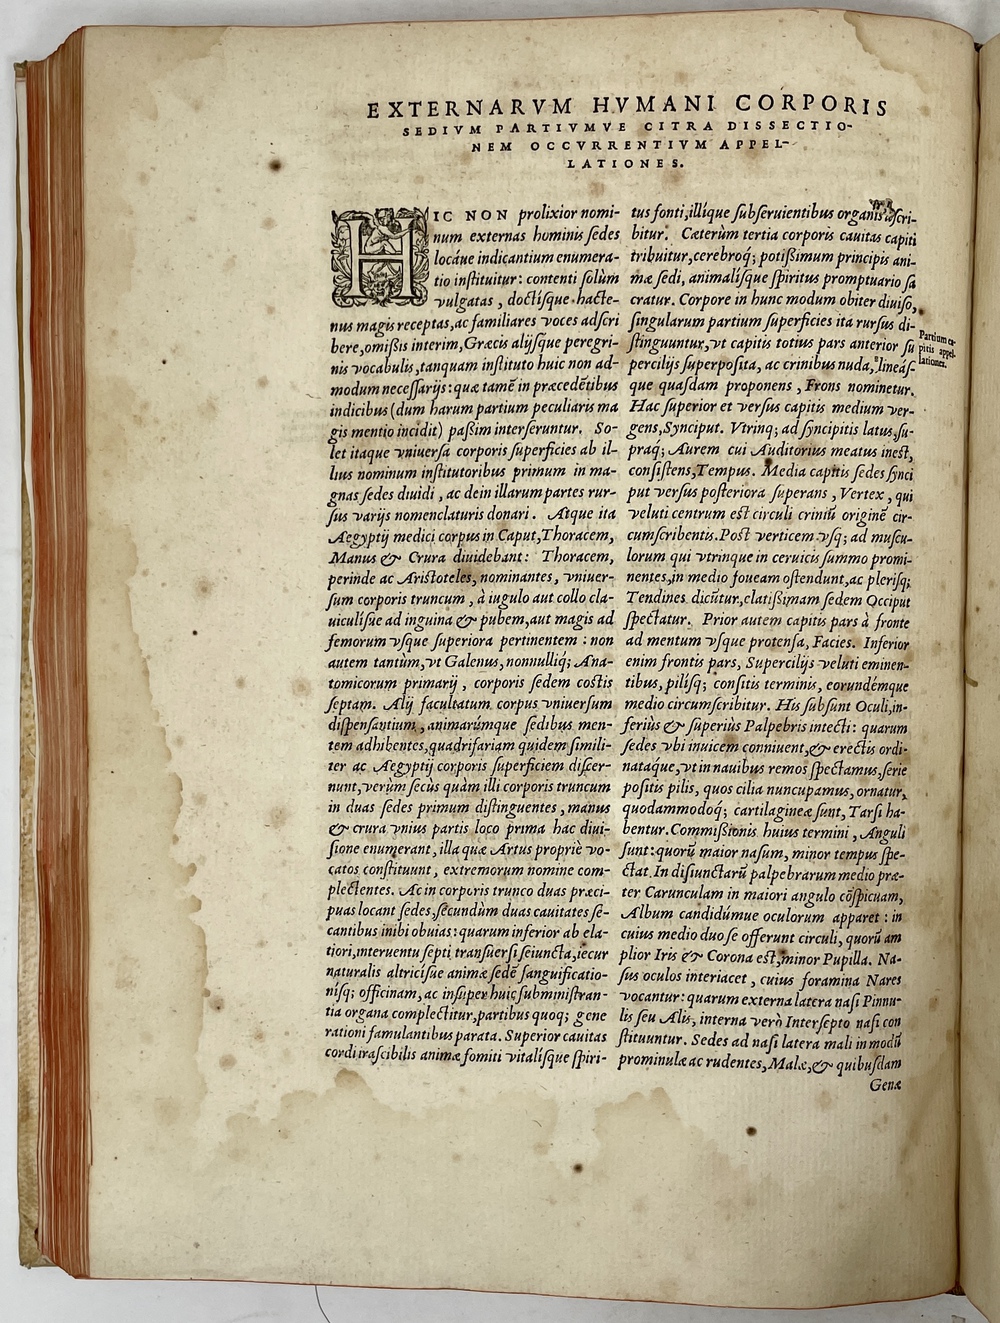 EXTERNARVM HVMANI CORPORIS
SEDIVM PARTIVMVE CITRA DISSECTIO-
NEM OCCVRRENTIVM APPEL-
LATIONES.
HIC NON prolixior nomi-
num externas hominis sedes
locáue indicantium enumera-
tio instituitur: contenti solùm
vulgatas, doctísque hacte-
nus magis receptas, ac familiares voces adscri
bere, omißis interim, Græcis alijsque peregri-
nis vocabulis, tanquam instituto huic non ad-
modum necessarijs: quæ tamē in præcedētibus
indicibus (dum harum partium peculiaris ma
gis mentio incidit) paßim interseruntur. So-
let itaque vniuersa corporis superficies ab il-
lius nominum institutoribus primum in ma-
gnas sedes diuidi, ac dein illarum partes rur-
sus varijs nomenclaturis donari. Atque ita
Aegyptij medici corpus in Caput, Thoracem,
Manus & Crura diuidebant: Thoracem,
perinde ac Aristoteles, nominantes, vniuer-
sum corporis truncum, à iugulo aut collo cla-
uiculisúe ad inguina & pubem, aut magis ad
femorum vsque superiora pertinentem: non
autem tantùm, vt Galenus, nonnulliq; Ana-
tomicorum primarij, corporis sedem costis
septam. Alij facultatum corpus vniuersum
dispensantium, animarúmque sedibus men-
tem adhibentes, quadrifariam quidem simili-
ter ac Aegyptij corporis superficiem discer-
nunt, verùm secus quàm illi corporis truncum
in duas sedes primum distinguentes, manus
& crura vnius partis loco prima hac diui-
sione enumerant, illa quæ Artus propriè vo-
catos constituunt, extremorum nomine com-
plectentes. Ac in corporis trunco duas præci-
puas locant sedes, secundùm duas cauitates se-
cantibus inibi obuias: quarum inferior ab ela-
tiori, interuentu septi transuersi seiuncta, iecur
naturalis altricisúe animæ sedē sanguificatio-
nisq; officinam, ac insuper huic subministran-
tia organa complectitur, partibus quoq; gene
rationi famulantibus parata. Superior cauitas
cordi irascibilis animæ fomiti vitalísque spiri-
tus fonti, illíque subseruientibus organis ascri-
bitur. Cæterùm tertia corporis cauitas capiti
tribuitur, cerebroq́; potißimum principis ani-
mæ sedi, animalísque spiritus promptuario sa
cratur. Corpore in hunc modum obiter diuiso,
singularum partium superficies ita rursus di-
stinguuntur, vt capitis totius pars anterior su
percilijs superposita, ac crinibus nuda, lineás-
que quasdam proponens, Frons nominetur.
Hac superior et versus capitis medium ver-
gens, Synciput. Vtrinq; ad syncipitis latus, su-
praq́; Aurem cui Auditorius meatus inest,
consistens, Tempus. Media capitis sedes synci
put versus posteriora superans, Vertex, qui
veluti centrum est circuli criniū originē cir-
cumscribentis. Post verticem vsq; ad muscu-
lorum qui vtrinque in ceruicis summo promi-
nentes, in medio foueam ostendunt, ac plerisq;
Tendines dicūtur, elatißimam sedem Occiput
spectatur. Prior autem capitis pars à fronte
ad mentum vsque protensa, Facies. Inferior
enim frontis pars, Supercilijs veluti eminen-
tibus, pilisq; consitis terminis, eorundémque
medio circumscribitur. His subsunt Oculi, in-
feriùs & superiùs Palpebris intecti: quarum
sedes vbi inuicem conniuent, & erectis ordi-
natáque, vt in nauibus remos spectamus, serie
positis pilis, quos cilia nuncupamus, ornatur,
quodammodoq́; cartilagineæ sunt, Tarsi ha-
bentur. Commißionis huius termini, Anguli
sunt: quorū maior nasum, minor tempus spe-
ctat. In disiunctarū palpebrarum medio præ-
ter Carunculam in maiori angulo cōspicuam,
Album candidúmue oculorum apparet: in
cuius medio duo se offerunt circuli, quorū am
plior Iris & Corona est, minor Pupilla. Na-
sus oculos interiacet, cuius foramina Nares
vocantur: quarum externa latera nasi Pinnu-
lis seu Alis, interna verò Intersepto nasi con
stituuntur. Sedes ad nasi latera mali in modū
prominulæ ac rudentes, Malæ, & quibusdam
Genæ
Partium ca-
pitis appel-
lationes.